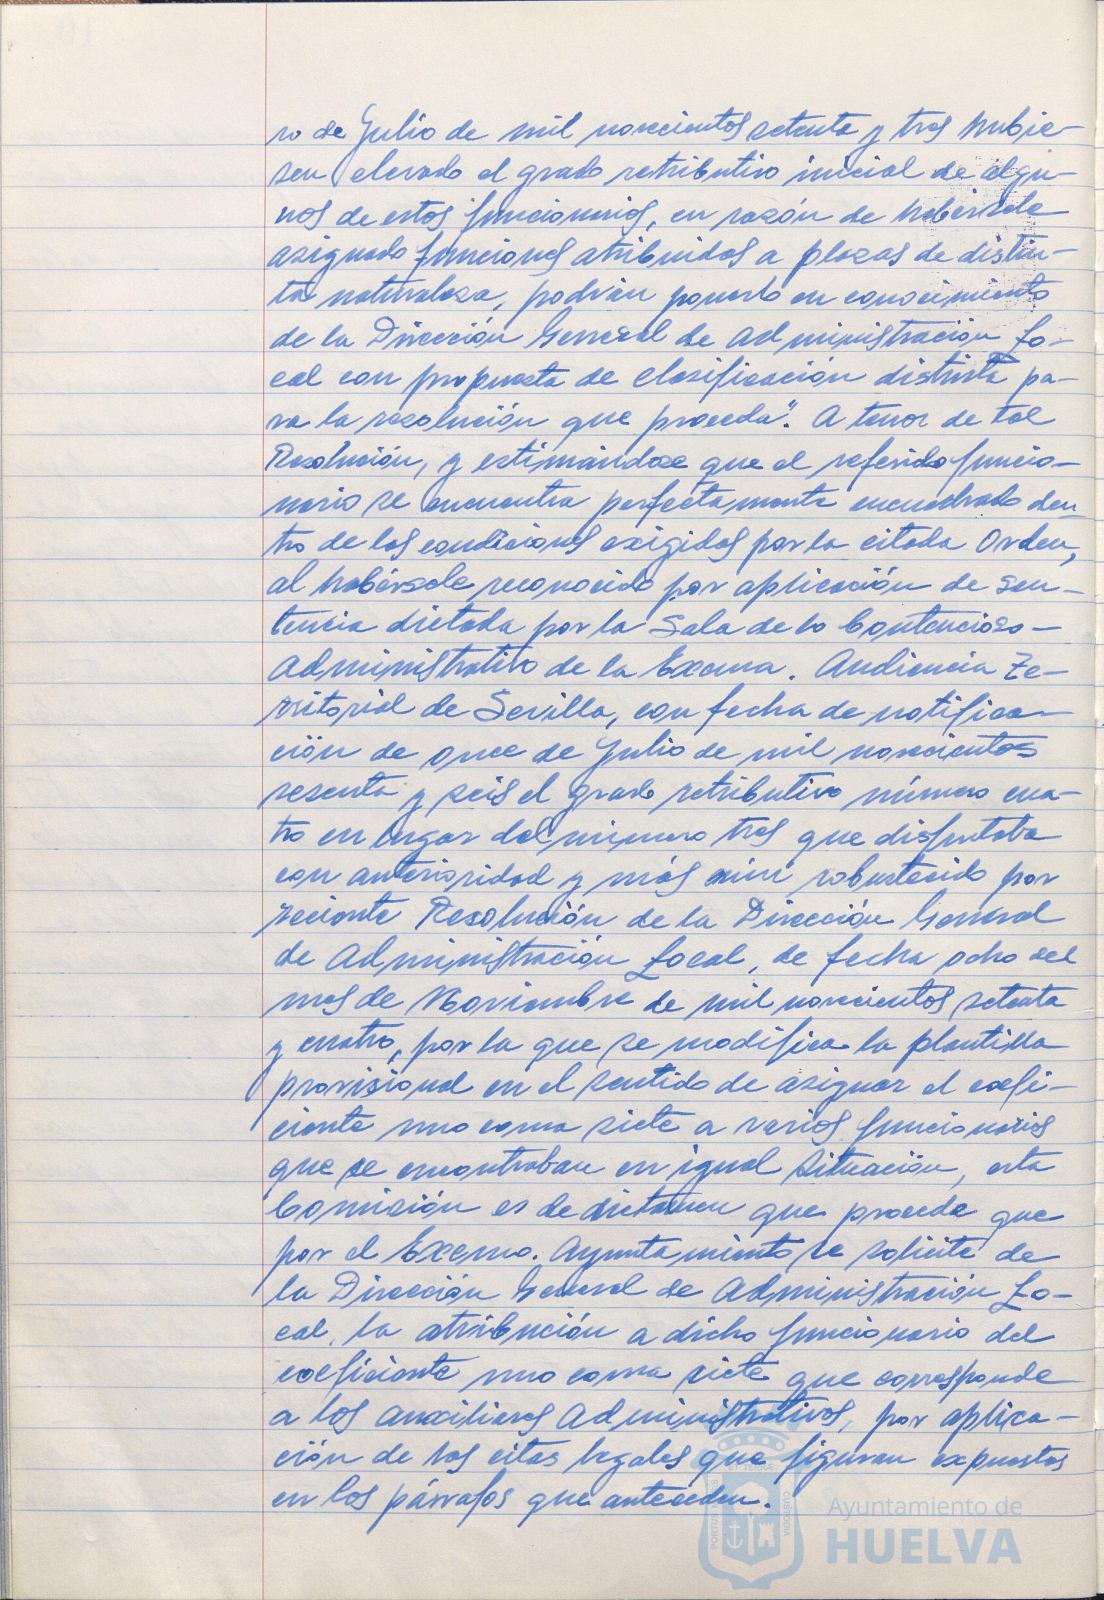 ro de Julio de mil novecientos setenta y tres hubie-
sen elevado el grado retributivo inicial de algu-
nos de estos funcionarios, en razón de habérsele
asignado funciones atribuidas a plazas de distin-
ta naturaleza, podrán ponerlo en conocimiento
de la Dirección General de Administración Lo-
cal con propuesta de clasificación distinta pa-
ra la resolución que proceda". A tenor de tal
Resolución, y estimándose que el referido funcio-
nario se encuentra perfectamente encuadrado den-
tro de las condiciones exigidas por la citada Orden,
al habérsele reconocido por aplicación de sen-
tencia dictada por la Sala de lo Contencioso-
Administrativo de la Excma. Audiencia Te-
rritorial de Sevilla, con fecha de notifica-
ción de once de Julio de mil novecientos
sesenta y seis el grado retributivo número cua-
tro en lugar del número tres que disfrutaba
con anterioridad y más aún robustecido por
reciente Resolución de la Dirección General
de Administración Local, de fecha ocho del
mes de Noviembre de mil novecientos setenta
y cuatro, por la que se modifica la plantilla
provisional en el sentido de asignar el coefi-
ciente uno coma siete a varios funcionarios
que se encontraban en igual situación, esta
Comisión es de dictamen que procede que
por el Excmo. Ayuntamiento se solicite de
la Dirección General de Administración Lo-
cal, la atribución a dicho funcionario del
coeficiente uno coma siete que corresponde
a los auxiliares Administrativos, por aplica-
ción de las citas legales que figuran expuestas
en los párrafos que anteceden.
Ayuntamiento de
HUELVA